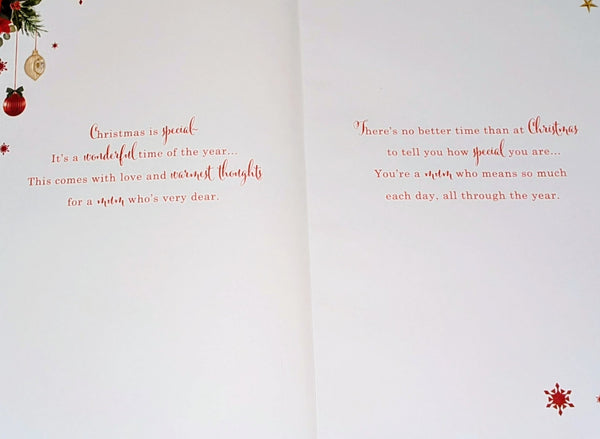 Christmas is special
It's a wonderful time of the year...
This comes with love and warmest thoughts
for a mum who's very dear.
There's no better time than at Christmas
to tell you how special you are...
You're a mum who means so much
each day, all through the year.